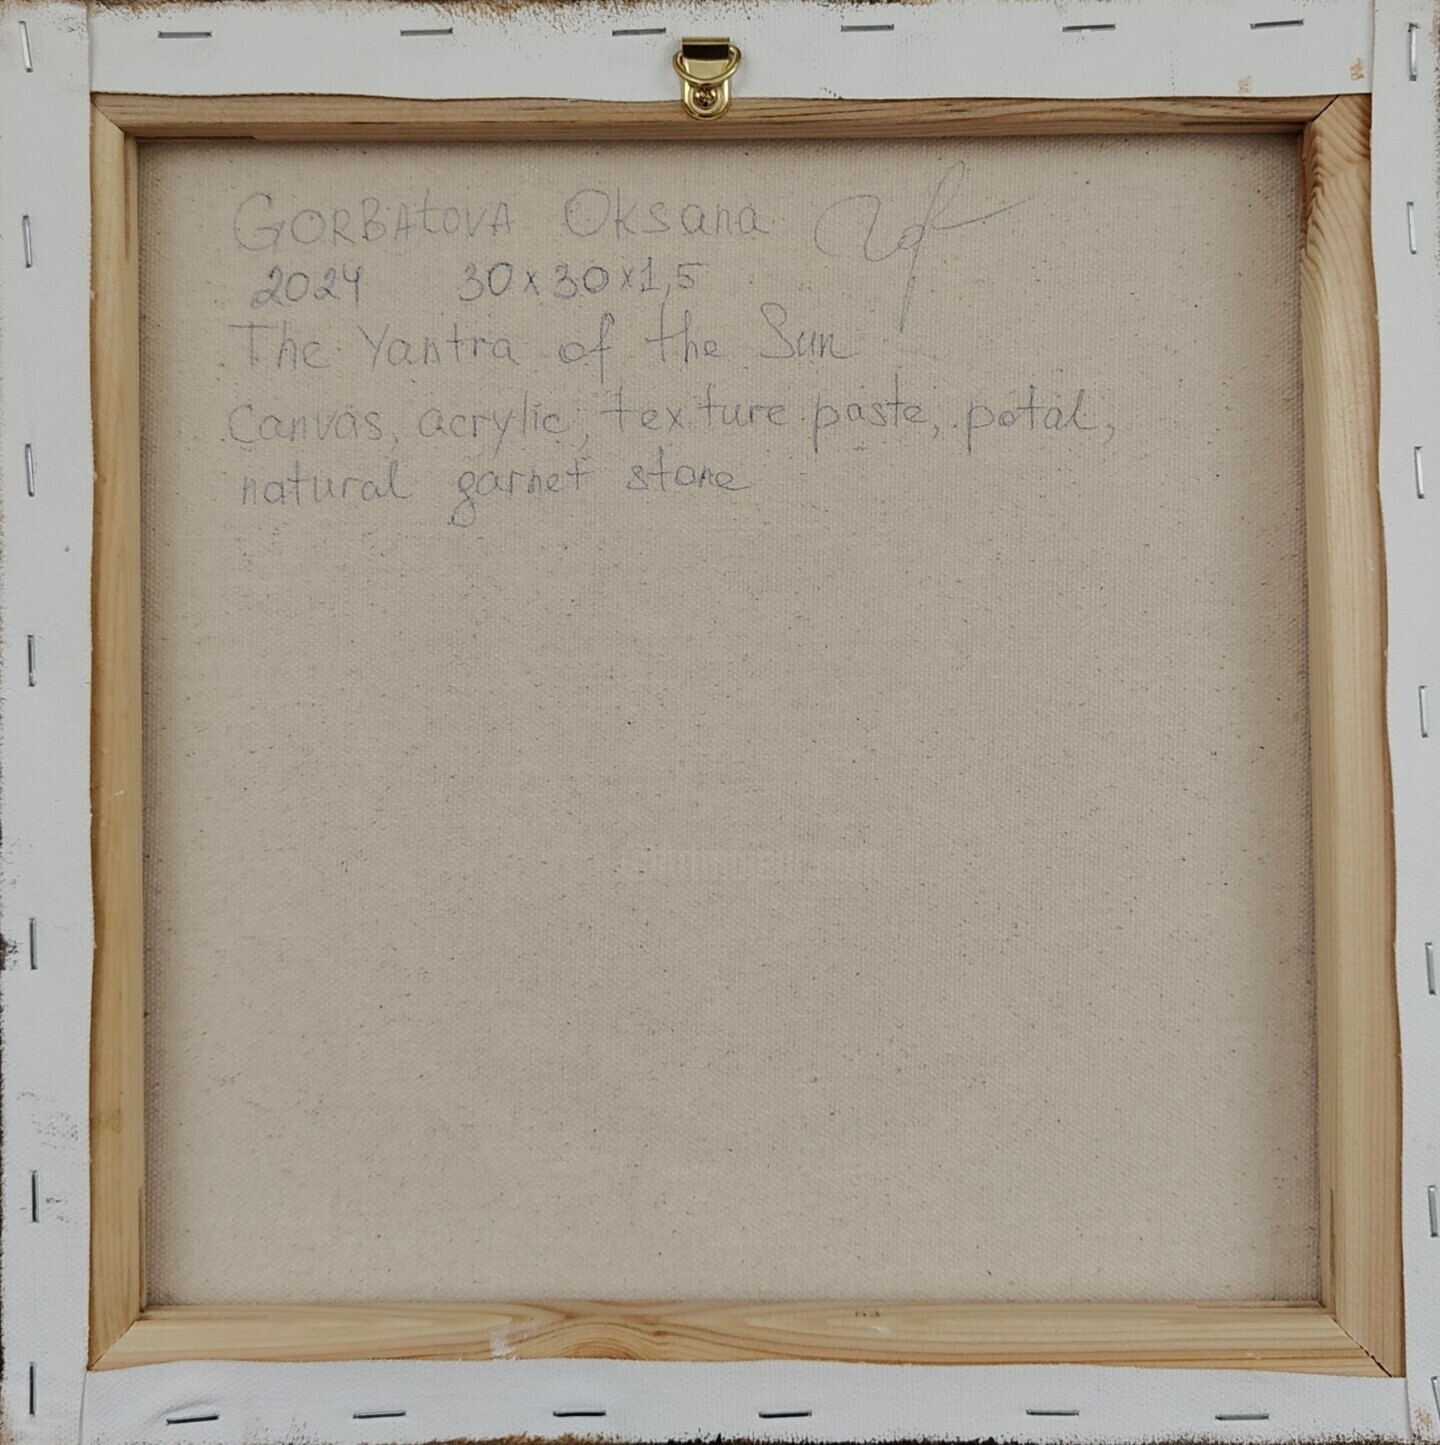 GORBAtOVA Oksana
2024 30x30x1,5
The Yantra of the Sun
Canvas, acrylic, texture paste, potal,
natural garnet stone